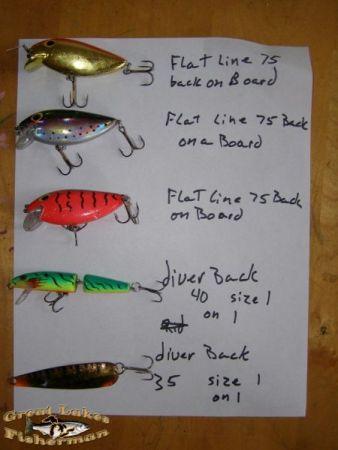 Flat Line 75
back on Board
Flat Line 75 Back
on a Board
Flat Line 75 Back
on Board
diver Back
40 size 1
on 1
diver Back
35 size 1
on 1
Great Lakes
Fisherman